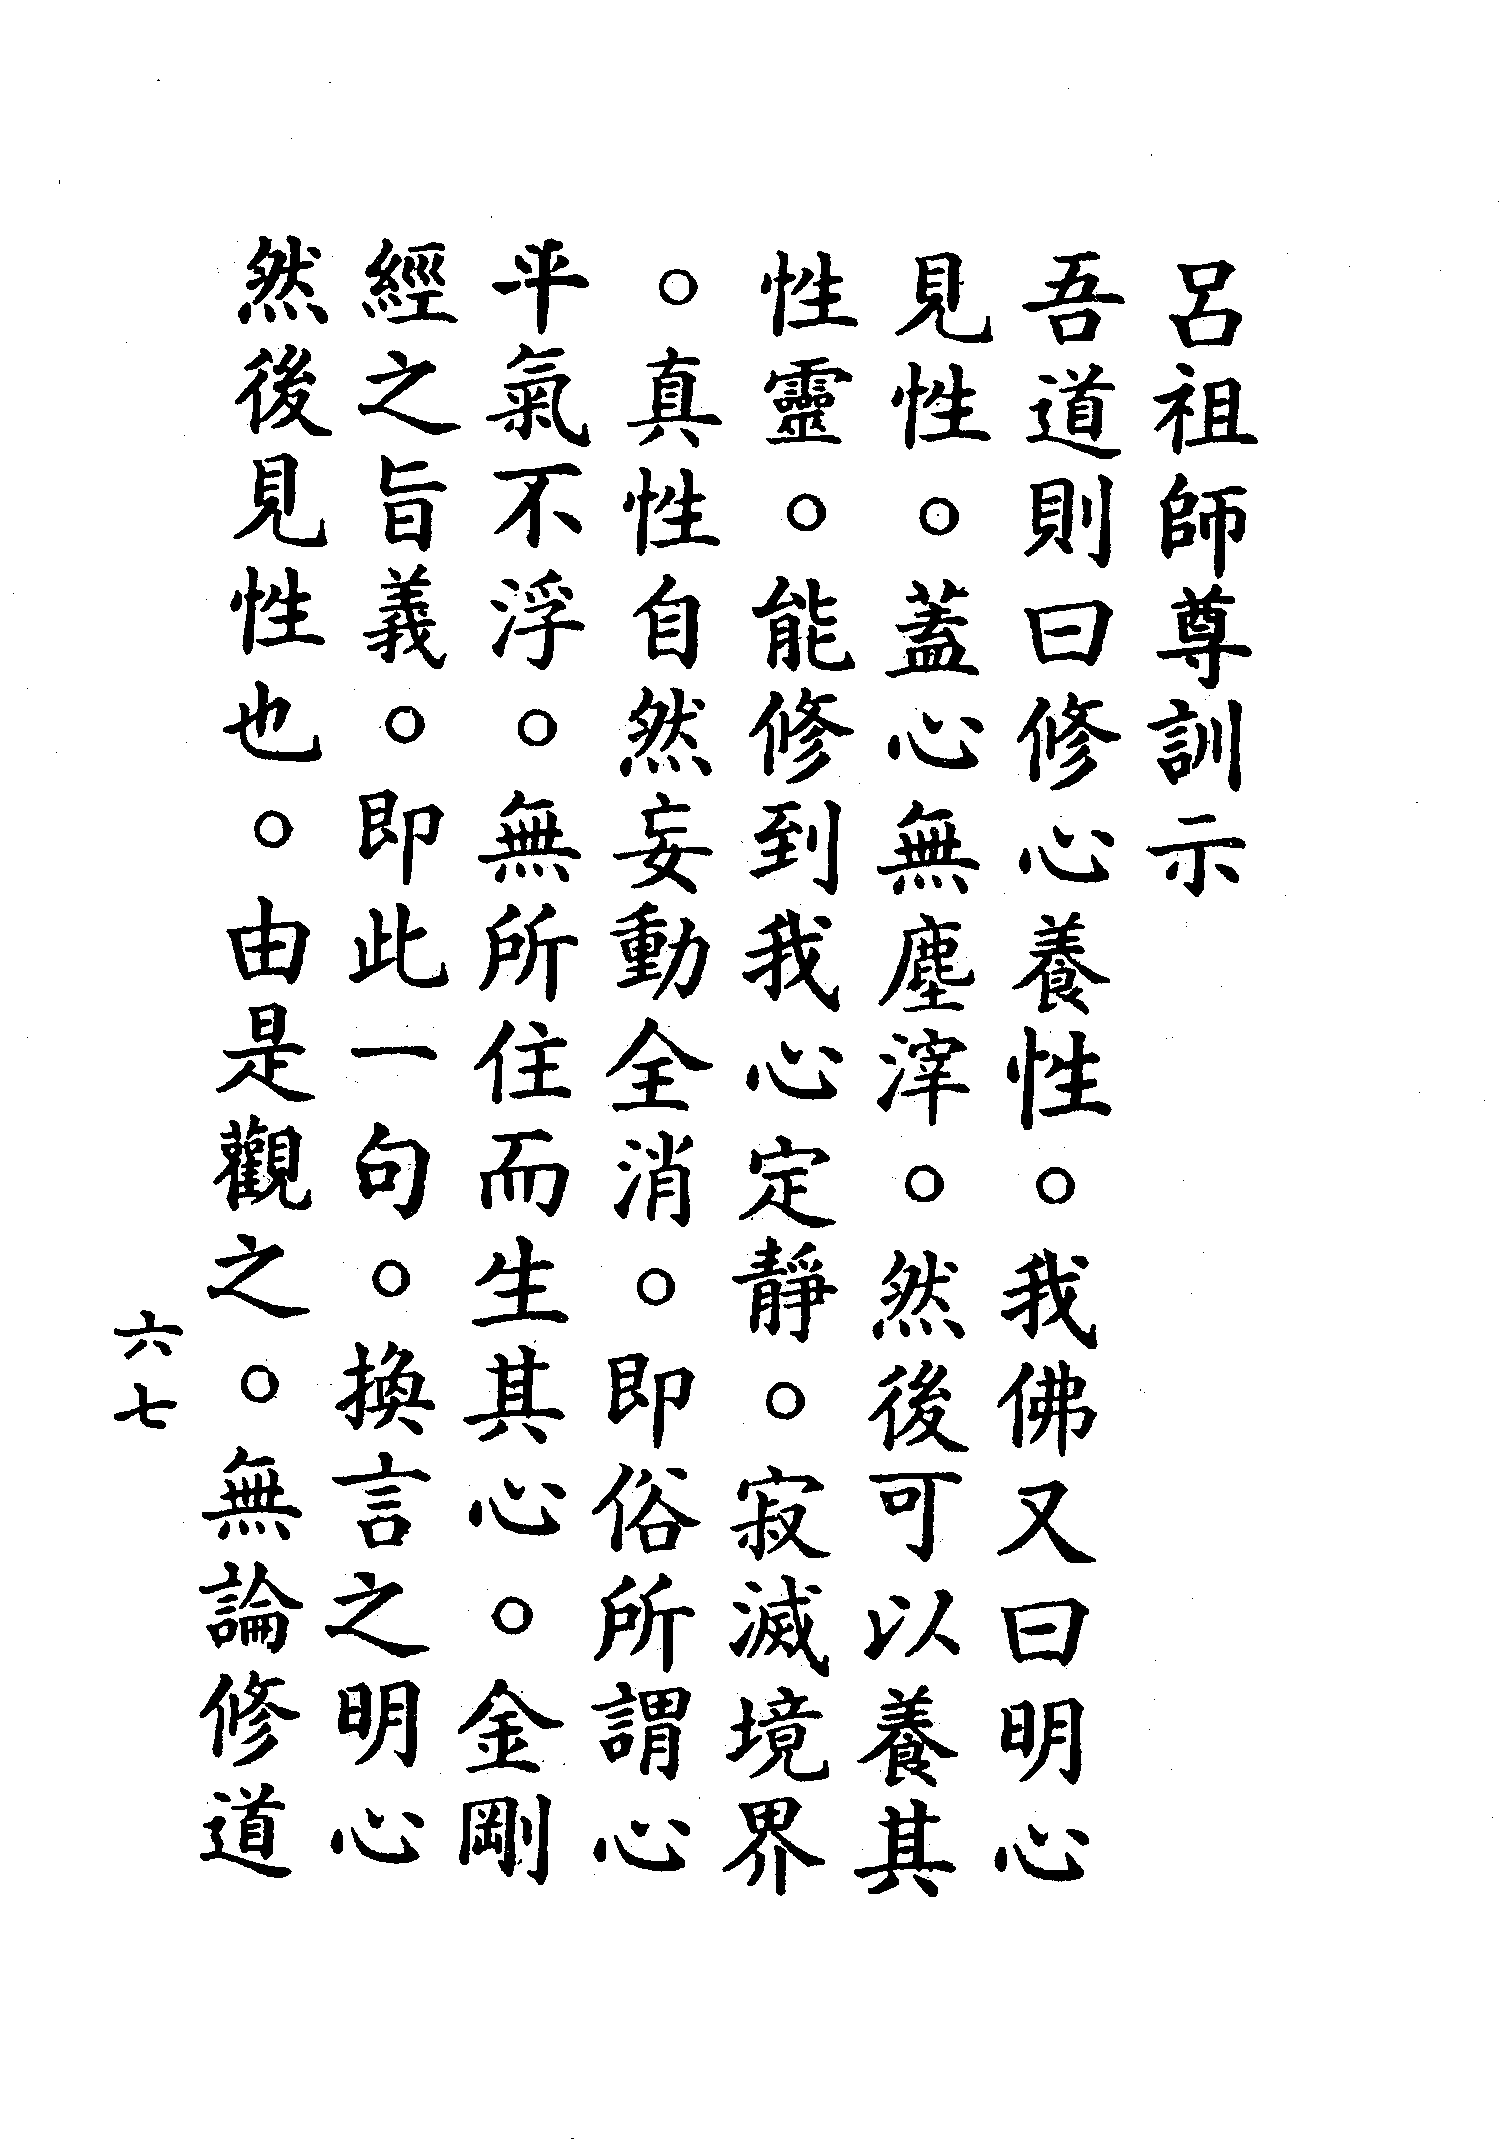 呂祖師尊訓示
吾道則曰修心養性。我佛又曰明心
見性。蓋心無塵滓。然後可以養其
性靈。能修到我心定靜。寂滅境界
。真性自然妄動全消。即俗所謂心
平氣不浮。無所住而生其心。金剛
經之旨義。即此一句。換言之明心
然後見性也。由是觀之。無論修道
六七